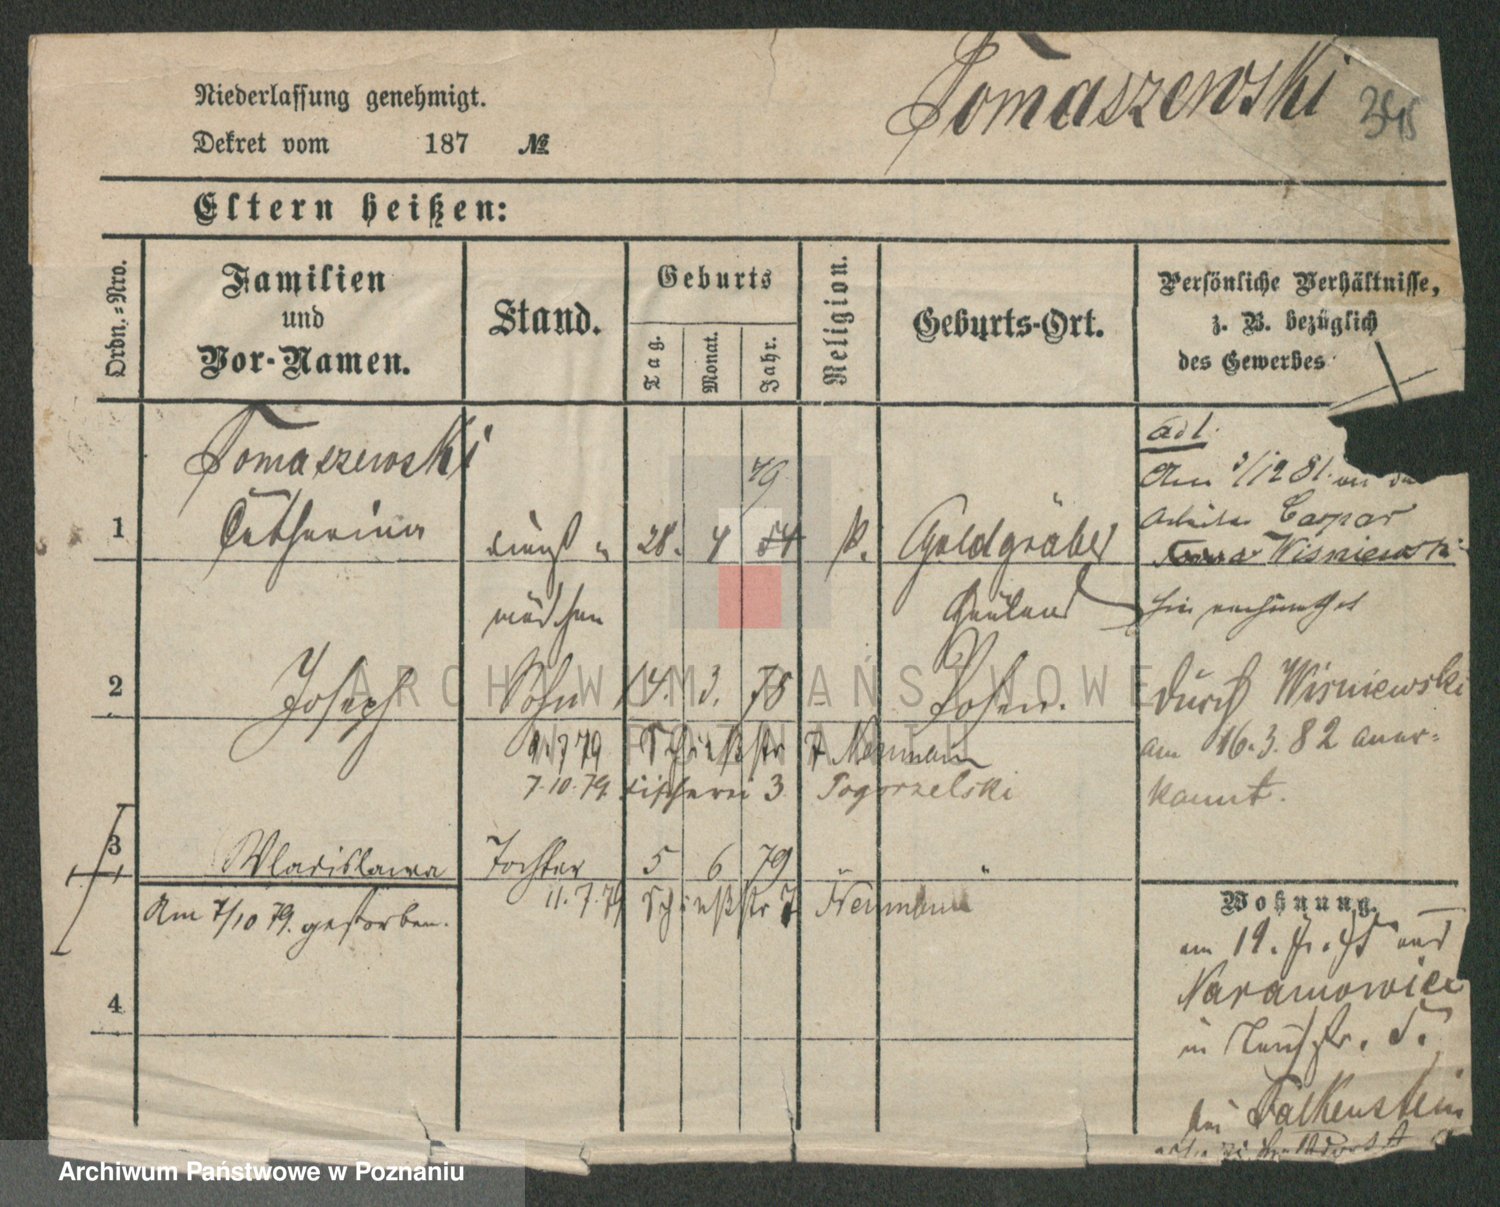 Tomaszewski
345
Niederlassung genehmigt.
Dekret vom 187 №
Eltern heißen:
Ordn.-Nro.
Familien
und
Vor-Namen.
Stand.
Geburts
Tag.
Monat.
Jahr.
Religion.
Geburts-Ort.
Persönliche Verhältnisse,
z. B. bezüglich
des Gewerbes
Tomaszewski
1 Catharina
dienst
mädchen
28. 4 54
79
k.
Goldgräber
Hauland
ad 1.
Am 3/12 81. an den
Arbeiter Caspar
Wisniewski
hier verheirathet
2 Joseph Sohn 14. 3. 78 Posen.
durch Wisniewski
am 16.3.82 aner-
kannt.
9.7.79 Schießstr 7 Neumann
7.10.79. Fischerei 3. Pogorzelski
3 Wladislawa Tochter 5 6 79 " "
11.7.79 Schießstr 7 Neumann
Am 7/10 79. gestorben.
4
Wohnung.
am 19. 75 aus
Naramowice
in 5.
bei Falkenstein
ARCHIWUM PAŃSTWOWE
W POZNANIU
Archiwum Państwowe w Poznaniu